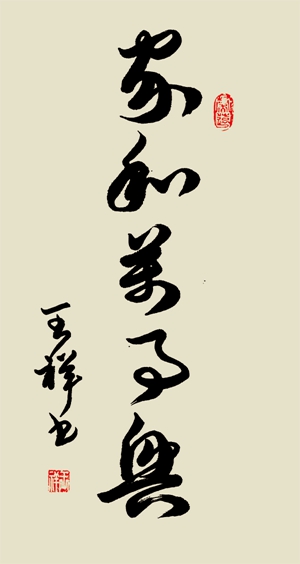 家和萬事興
王祥书